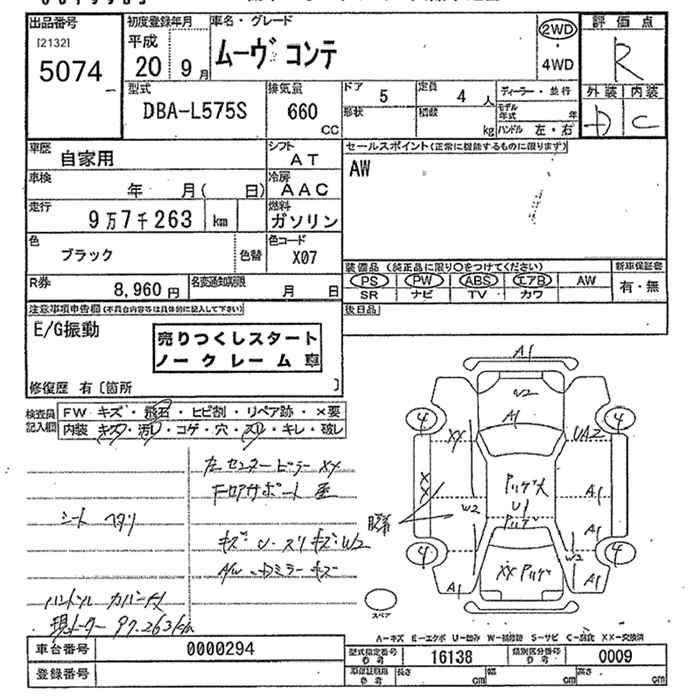 出品番号
[2132]
5074
初度登録年月
平成
20 9月
車名・グレード
ムーヴ コンテ
2WD
4WD
評価点
R
外装 内装
D C
型式
DBA-L575S
排気量
660
CC
ドア 5
定員 4 人
形状
積載 kg
ディーラー・並行
モデル年式 年
ハンドル 左・右
車歴
自家用
シフト
AT
車検
年 月( 日)
冷房
AAC
走行
9万7千263 km
燃料
ガソリン
色
ブラック
色替
色コード
X07
R券
8,960円
名変通知期限
月 日
セールスポイント(正常に機能するものに限ります)
AW
装備品 (純正品に限り○をつけてください)
PS PW ABS エアB AW
SR ナビ TV カワ
新車保証書
有・無
後日品
注意事項申告欄(不具合内容等は具体的に記入して下さい)
E/G振動
売りつくしスタート
ノークレーム 車
修復歴 有〔箇所 〕
検査員記入欄
FW キズ・飛石・ヒビ割・リペア跡・×要
内装・キズ・汚レ・コゲ・穴・スリ・キレ・破レ
左センターピラー XX
フロアサポート
シート ヘタリ
キズ・U・スリキズ・W2
A/W ドアミラー キズ
ハンドル カバー付
現メーター 97.263km
A1
W2
A1
4
4
XX
UA2
XX
W2
U1
A1
A1
W2
4
4
XX
A1
A1
A1
スペア
A-キズ E-エクボ U-凹み W-補修跡 S-サビ C-腐蝕 XX-交換済
車台番号
0000294
登録番号
型式指定番号
参考
16138
類別区分番号
参考
0009
車証証明用
参考
長さ cm
幅 cm
高さ cm